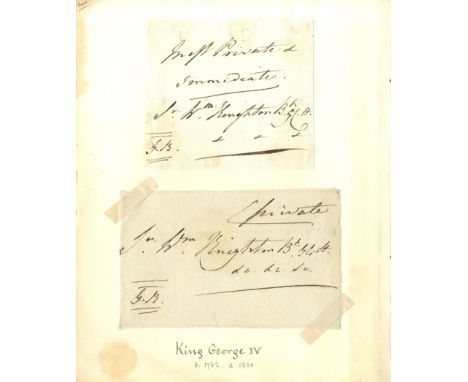 Most Private &
immediate.
Sr. Wm. Knighton Bt. G.C.H.
& & &
G.R.
Private
Sr. Wm. Knighton Bt. G.C.H.
&c. &c. &c.
G.R.
King George IV
b. 1762 d. 1830